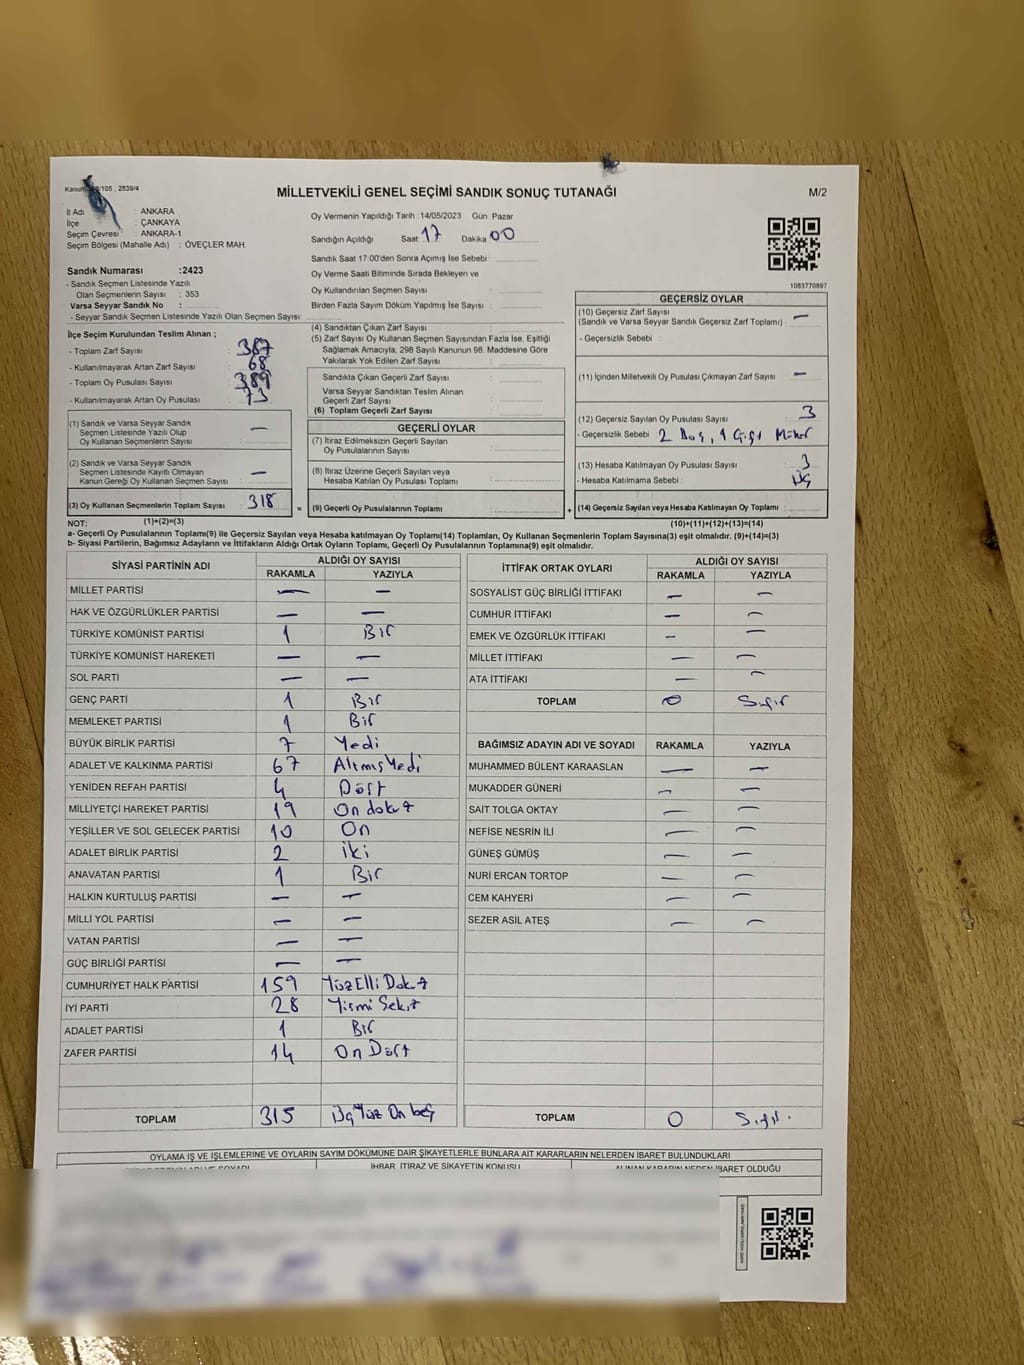 MİLLETVEKİLİ GENEL SEÇİMİ SANDIK SONUÇ TUTANAĞI
M/2
İl Adı : ANKARA
İlçe : ÇANKAYA
Seçim Çevresi : ANKARA-1
Seçim Bölgesi (Mahalle Adı) : ÖVEÇLER MAH
Oy Vermenin Yapıldığı Tarih : 14/05/2023 Gün: Pazar
Sandığın Açıldığı Saat 17 Dakika 00
Sandık Saat 17:00'den Sonra Açımış İse Sebebi :
Oy Verme Saati Bitiminde Sırada Bekleyen ve
Oy Kullandırılan Seçmen Sayısı :
Birden Fazla Sayım Döküm Yapılmış İse Sayısı :
1083770897
Sandık Numarası :2423
- Sandık Seçmen Listesinde Yazılı
Olan Seçmenlerin Sayısı : 353
Varsa Seyyar Sandık No :
- Seyyar Sandık Seçmen Listesinde Yazılı Olan Seçmen Sayısı:
İlçe Seçim Kurulundan Teslim Alınan ;
- Toplam Zarf Sayısı : 387
- Kullanılmayarak Artan Zarf Sayısı : 68
- Toplam Oy Pusulası Sayısı : 389
- Kullanılmayarak Artan Oy Pusulası : 73
(1) Sandık ve Varsa Seyyar Sandık
Seçmen Listesinde Yazılı Olup
Oy Kullanan Seçmenlerin Sayısı : —
(2) Sandık ve Varsa Seyyar Sandık
Seçmen Listesinde Kayıtlı Olmayan
Kanun Gereği Oy Kullanan Seçmen Sayısı : —
(3) Oy Kullanan Seçmenlerin Toplam Sayısı : 318
(4) Sandıktan Çıkan Zarf Sayısı :
(5) Zarf Sayısı Oy Kullanan Seçmen Sayısından Fazla İse, Eşitliği
Sağlamak Amacıyla, 298 Sayılı Kanunun 98. Maddesine Göre
Yakılarak Yok Edilen Zarf Sayısı :
Sandıkta Çıkan Geçerli Zarf Sayısı :
Varsa Seyyar Sandıktan Teslim Alınan
Geçerli Zarf Sayısı :
(6) Toplam Geçerli Zarf Sayısı :
GEÇERLİ OYLAR
(7) İtiraz Edilmeksizin Geçerli Sayılan
Oy Pusulalarının Sayısı :
(8) İtiraz Üzerine Geçerli Sayılan veya
Hesaba Katılan Oy Pusulası Toplamı :
= (9) Geçerli Oy Pusulalarının Toplamı :
GEÇERSİZ OYLAR
(10) Geçersiz Zarf Sayısı
(Sandık ve Varsa Seyyar Sandık Geçersiz Zarf Toplamı) : —
- Geçersizlik Sebebi :
(11) İçinden Milletvekili Oy Pusulası Çıkmayan Zarf Sayısı : —
(12) Geçersiz Sayılan Oy Pusulası Sayısı : 3
- Geçersizlik Sebebi : 2 Boş, 1
(13) Hesaba Katılmayan Oy Pusulası Sayısı : 3
- Hesaba Katılmama Sebebi : Üç
+ (14) Geçersiz Sayılan veya Hesaba Katılmayan Oy Toplamı :
NOT: (1)+(2)=(3) (10)+(11)+(12)+(13)=(14)
a- Geçerli Oy Pusulalarının Toplamı(9) ile Geçersiz Sayılan veya Hesaba Katılmayan Oy Toplamı(14) Toplamları, Oy Kullanan Seçmenlerin Toplam Sayısına(3) eşit olmalıdır. (9)+(14)=(3)
b- Siyasi Partilerin, Bağımsız Adayların ve İttifakların Aldığı Ortak Oyların Toplamı, Geçerli Oy Pusulalarının Toplamına(9) eşit olmalıdır.
SİYASİ PARTİNİN ADI ALDIĞI OY SAYISI
RAKAMLA YAZIYLA
MİLLET PARTİSİ — —
HAK VE ÖZGÜRLÜKLER PARTİSİ — —
TÜRKİYE KOMÜNİST PARTİSİ 1 Bir
TÜRKİYE KOMÜNİST HAREKETİ — —
SOL PARTİ — —
GENÇ PARTİ 1 Bir
MEMLEKET PARTİSİ 1 Bir
BÜYÜK BİRLİK PARTİSİ 7 Yedi
ADALET VE KALKINMA PARTİSİ 67 Altmış Yedi
YENİDEN REFAH PARTİSİ 4 Dört
MİLLİYETÇİ HAREKET PARTİSİ 19 On dokuz
YEŞİLLER VE SOL GELECEK PARTİSİ 10 On
ADALET BİRLİK PARTİSİ 2 iki
ANAVATAN PARTİSİ 1 Bir
HALKIN KURTULUŞ PARTİSİ — —
MİLLİ YOL PARTİSİ — —
VATAN PARTİSİ — —
GÜÇ BİRLİĞİ PARTİSİ — —
CUMHURİYET HALK PARTİSİ 159 Yüz Elli Dokuz
İYİ PARTİ 28 Yirmi Sekiz
ADALET PARTİSİ 1 Bir
ZAFER PARTİSİ 14 On Dört
TOPLAM 315 Üç Yüz On beş
İTTİFAK ORTAK OYLARI ALDIĞI OY SAYISI
RAKAMLA YAZIYLA
SOSYALİST GÜÇ BİRLİĞİ İTTİFAKI — —
CUMHUR İTTİFAKI — —
EMEK VE ÖZGÜRLÜK İTTİFAKI — —
MİLLET İTTİFAKI — —
ATA İTTİFAKI — —
TOPLAM 0 Sıfır
BAĞIMSIZ ADAYIN ADI VE SOYADI RAKAMLA YAZIYLA
MUHAMMED BÜLENT KARAASLAN — —
MUKADDER GÜNERİ — —
SAİT TOLGA OKTAY — —
NEFİSE NESRİN İLİ — —
GÜNEŞ GÜMÜŞ — —
NURİ ERCAN TORTOP — —
CEM KAHYERİ — —
SEZER ASİL ATEŞ — —
TOPLAM 0 Sıfır.
OYLAMA İŞ VE İŞLEMLERİNE VE OYLARIN SAYIM DÖKÜMÜNE DAİR ŞİKAYETLERLE BUNLARA AİT KARARLARIN NELERDEN İBARET BULUNDUKLARI
İHBAR, İTİRAZ VE ŞİKAYETİN KONUSU
ALINAN KARARIN NEDEN İBARET OLDUĞU